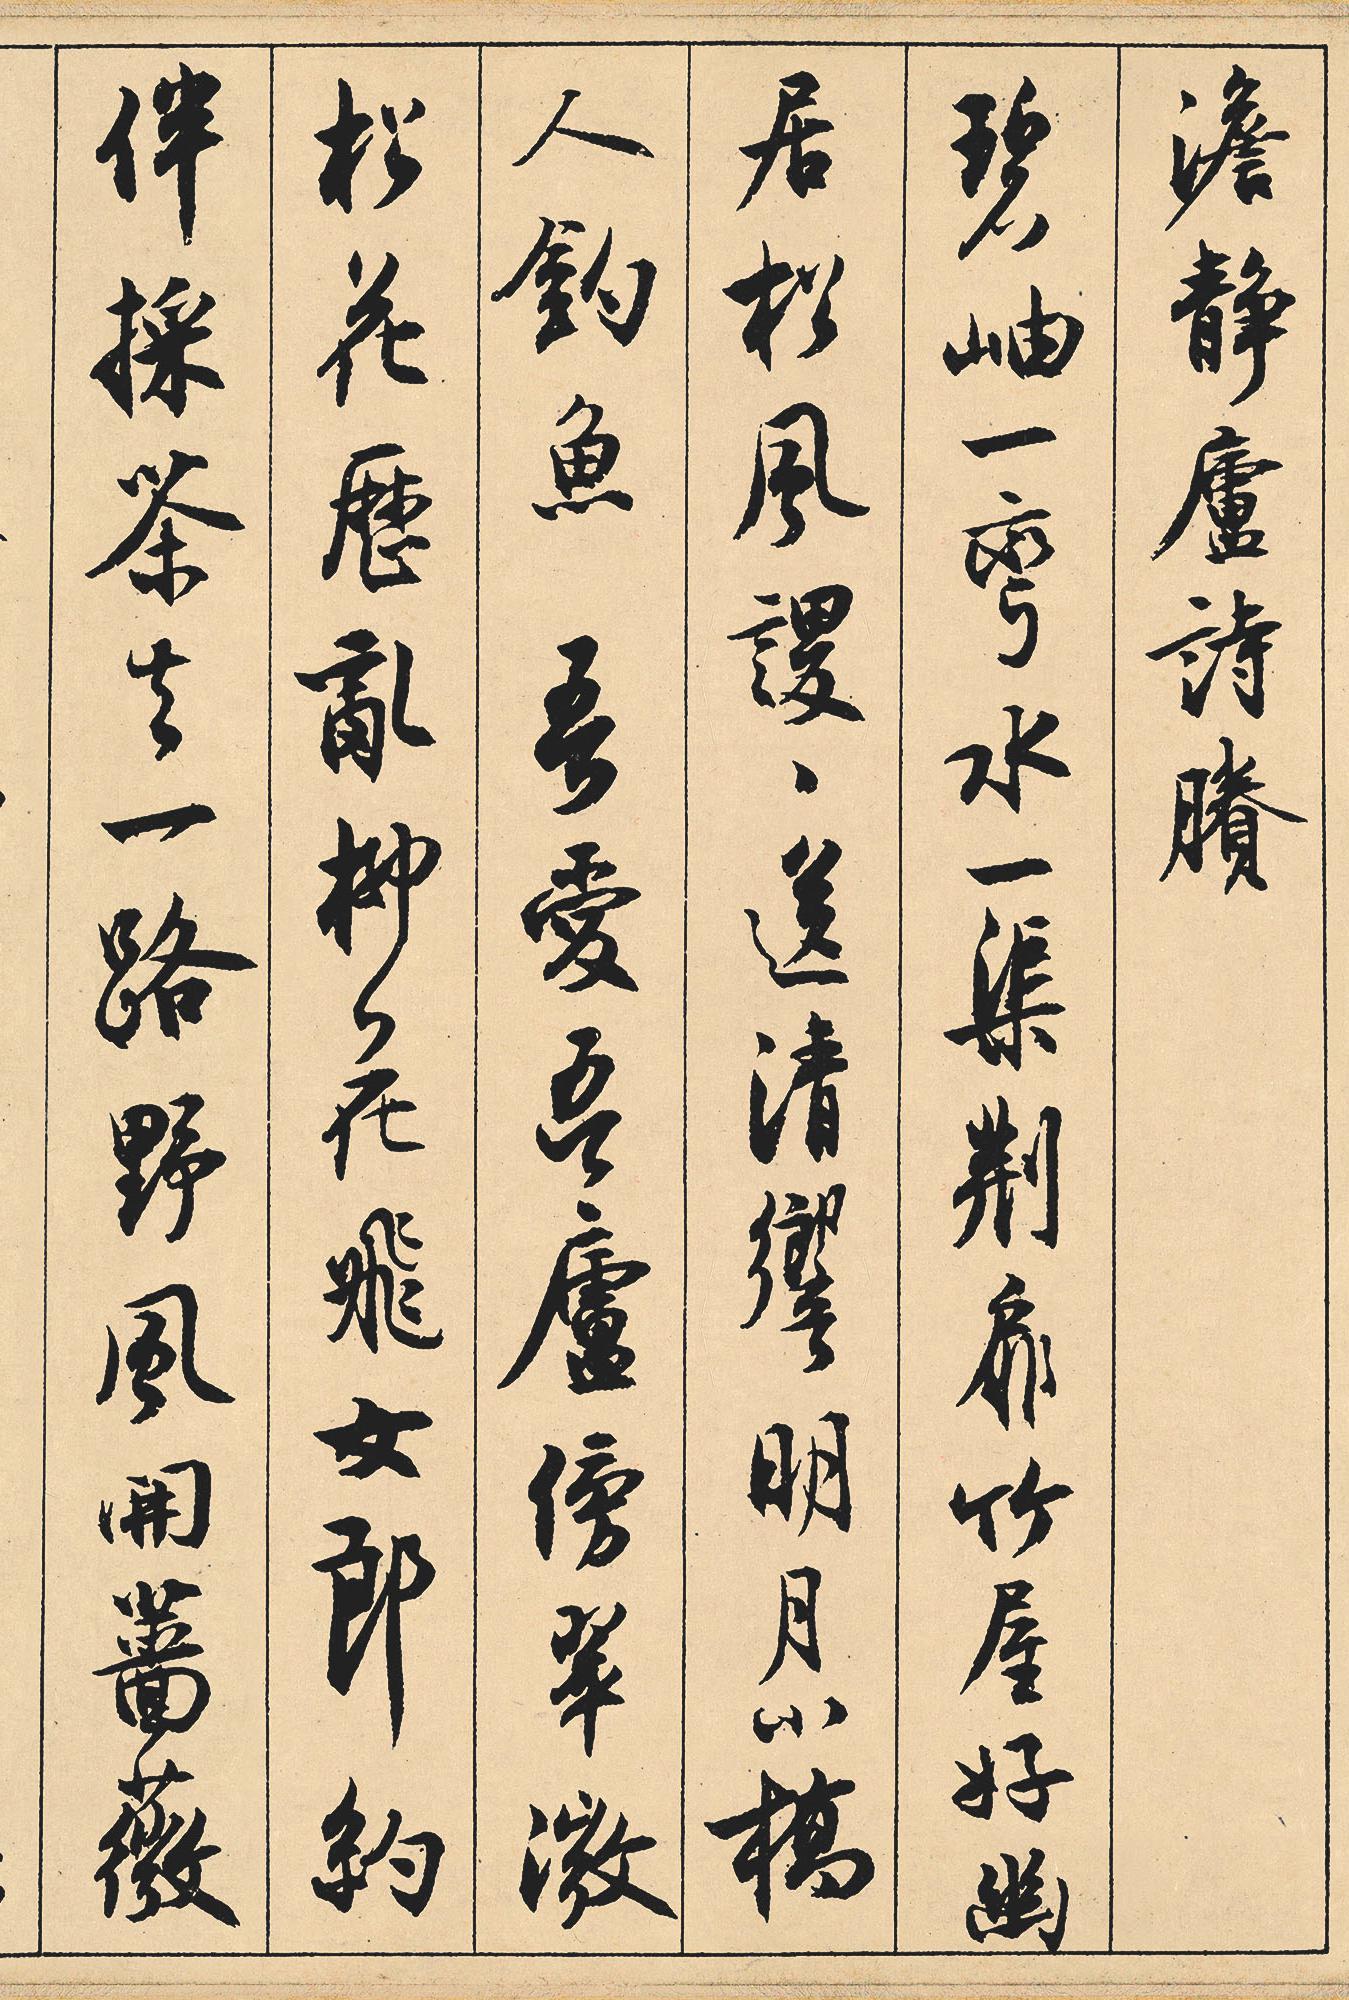 澹靜廬詩賸
碧岫一彎水一渠荆扉竹屋好幽
居松風謖〻送清響明月小橋
人釣魚 吾愛吾廬傍翠澂
松花歷亂柳花飛女郎約
伴採茶去一路野風開薔薇